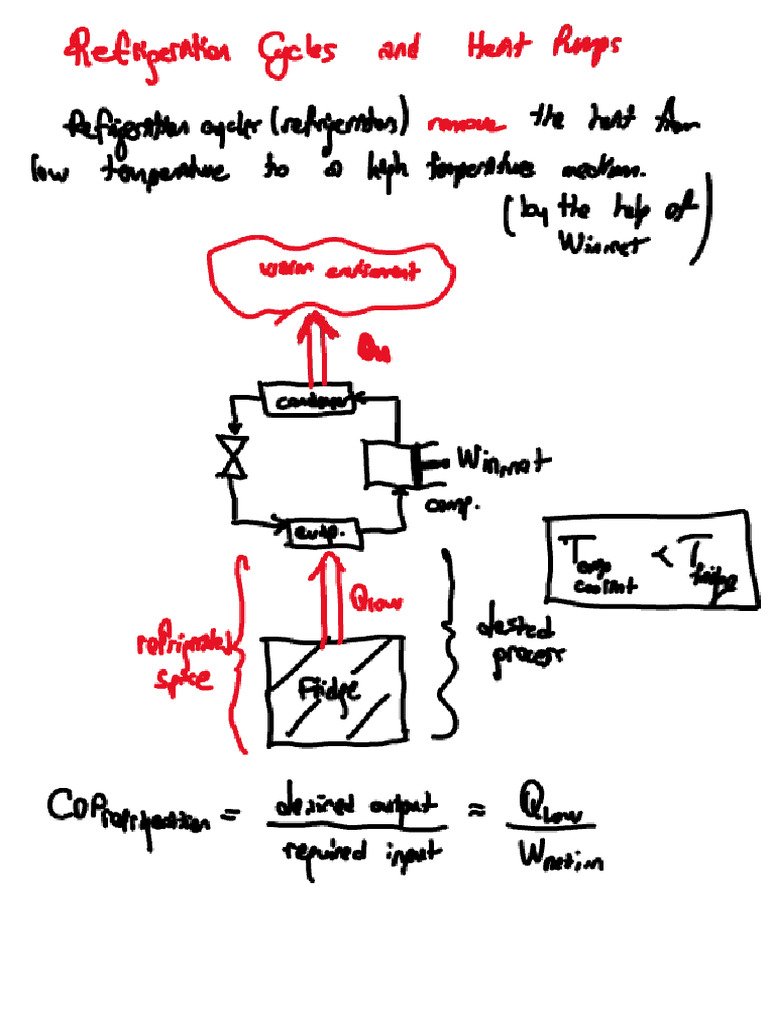 Refrigeration Cycles and Heat Pumps
Refrigeration cycles (refrigerators) remove the heat from
low temperature to a high temperature medium.
(by the help of
Win,net)
warm enviroment
QH
condenser
Win,net
comp.
evap.
Tevap < Tfridge
coolant
QLow
refrigerated
space
desired
process
Fridge
COPrefrigeration = desired output ≈ QLow
required input Wnet,in